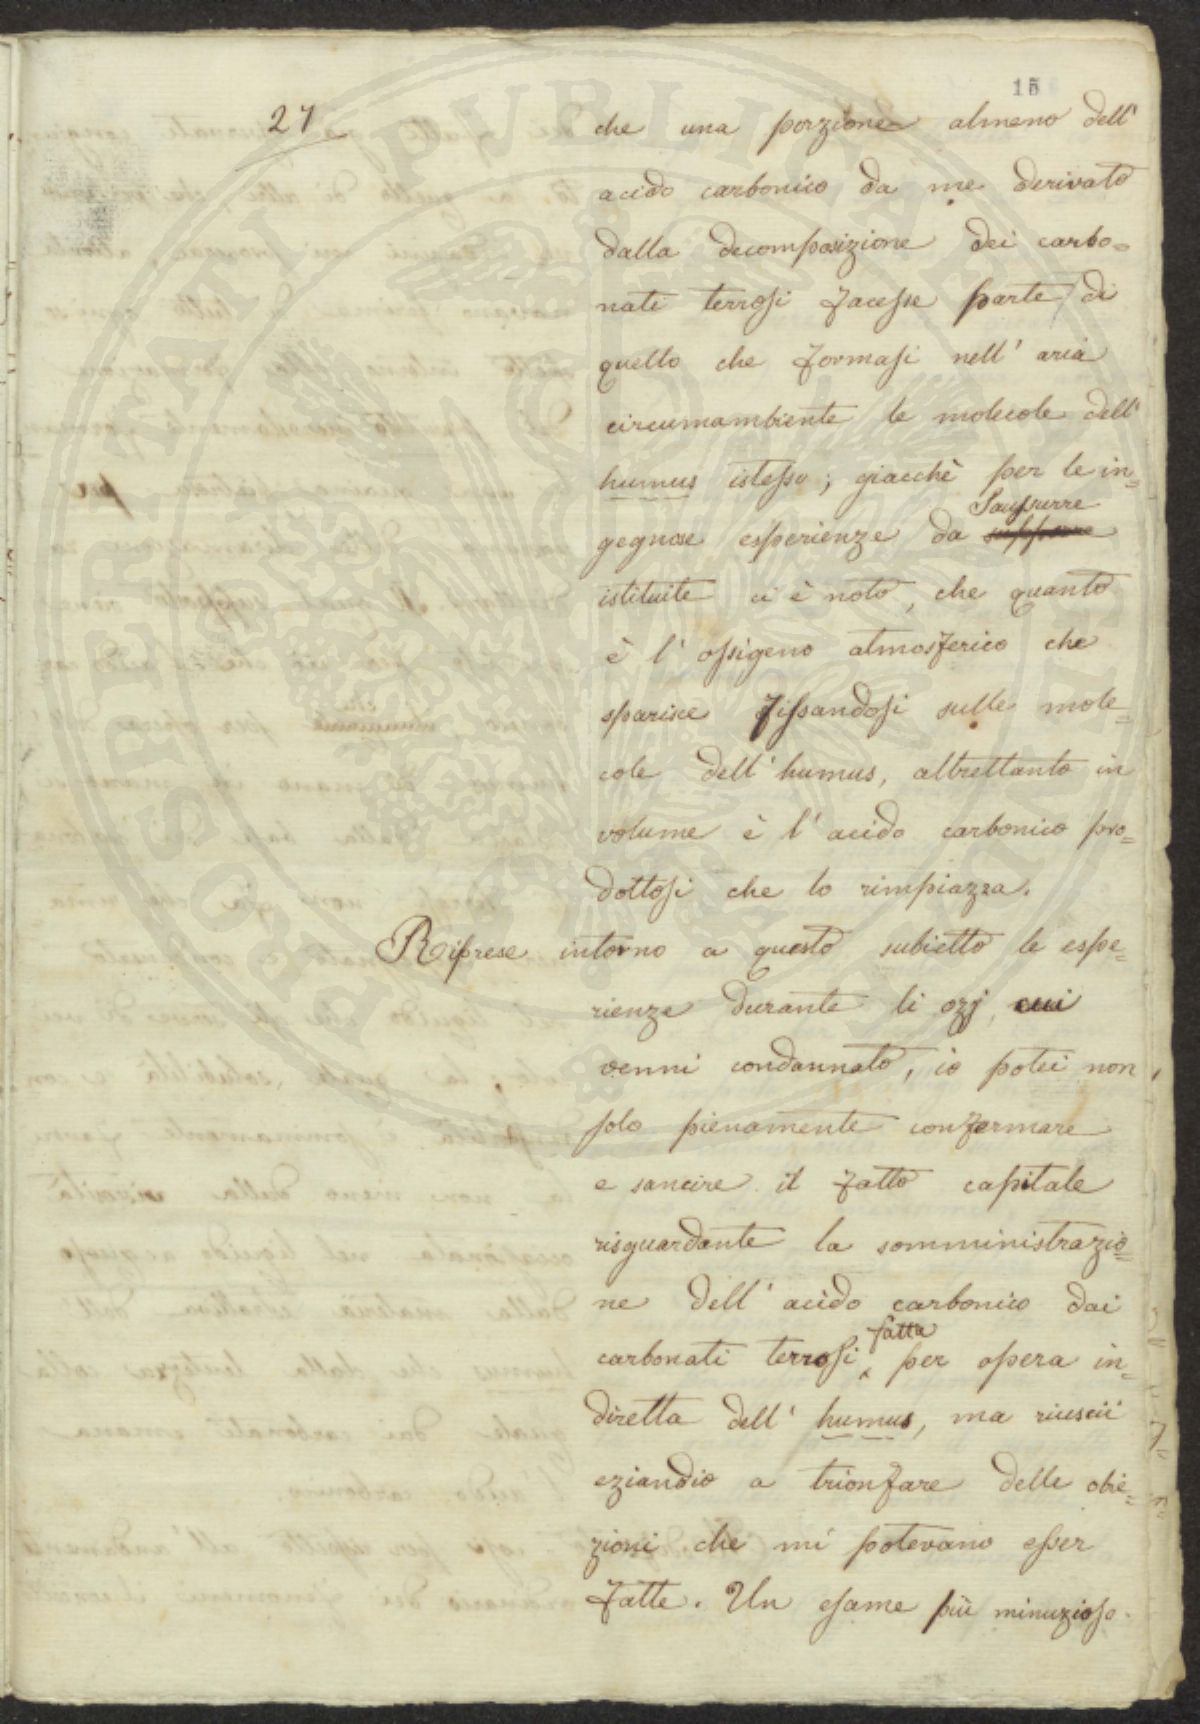 15
27
che una porzione almeno dell'
acido carbonico da me derivato
dalla decomposizione dei carbo=
nati terrosi facesse parte di
quello che formasi nell' aria
circumambiente le molecole dell'
humus istesso; giacchè per le in=
Saussurre
gegnose esperienze da
istituite ci è noto, che quanto
è l' ossigeno atmosferico che
sparisce fissandosi sulle mole=
cole dell' humus, altrettanto in
volume è l' acido carbonico pro=
dottosi che lo rimpiazza.
Riprese intorno a questo subietto le espe=
rienze durante li ozj, cui
venni condannato, io potei non
solo pienamente confermare
e sancire il fatto capitale
risguardante la somministrazio=
ne dell' acido carbonico dai
fatta
carbonati terrosi, per opera in=
diretta dell' humus, ma riuscii
eziandio a trionfare delle obie=
zioni che mi potevano esser
fatte. Un esame più minuzioso